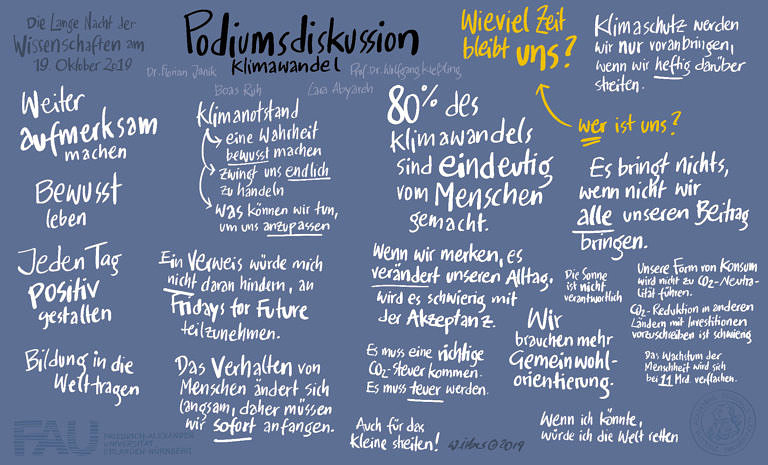 Die Lange Nacht der
Wissenschaften am
19. Oktober 2019
Podiumsdiskussion
Klimawandel
Dr. Florian Janik
Prof. Dr. Wolfgang Kießling
Boas Rüh
Lara Abyareh
Wieviel Zeit
bleibt uns?
wer ist uns?
Klimaschutz werden
wir nur voranbringen,
wenn wir heftig darüber
streiten.
Weiter
aufmerksam
machen
Bewusst
leben
Jeden Tag
positiv
gestalten
Bildung in die
Welt tragen
Klimanotstand
eine Wahrheit
bewusst machen
zwingt uns endlich
zu handeln
was können wir tun,
um uns anzupassen
Ein Verweis würde mich
nicht daran hindern, an
Fridays for Future
teilzunehmen.
Das Verhalten von
Menschen ändert sich
langsam, daher müssen
wir sofort anfangen.
80% des
Klimawandels
sind eindeutig
vom Menschen
gemacht.
Wenn wir merken, es
verändert unseren Alltag,
wird es schwierig mit
der Akzeptanz.
Es muss eine richtige
CO2-Steuer kommen.
Es muss teuer werden.
Auch für das
Kleine streiten!
Es bringt nichts,
wenn nicht wir
alle unseren Beitrag
bringen.
Die Sonne
ist nicht
verantwortlich
Wir
brauchen mehr
Gemeinwohl-
orientierung.
Unsere Form von Konsum
wird nicht zu CO2-Neutra-
lität führen.
CO2-Reduktion in anderen
Ländern mit Investitionen
vorzuschreiben ist schwierig
Das Wachstum der
Menschheit wird sich
bei 11 Mrd. verflachen.
Wenn ich könnte,
würde ich die Welt retten
©2019
FAU
FRIEDRICH-ALEXANDER
UNIVERSITÄT
ERLANGEN-NÜRNBERG